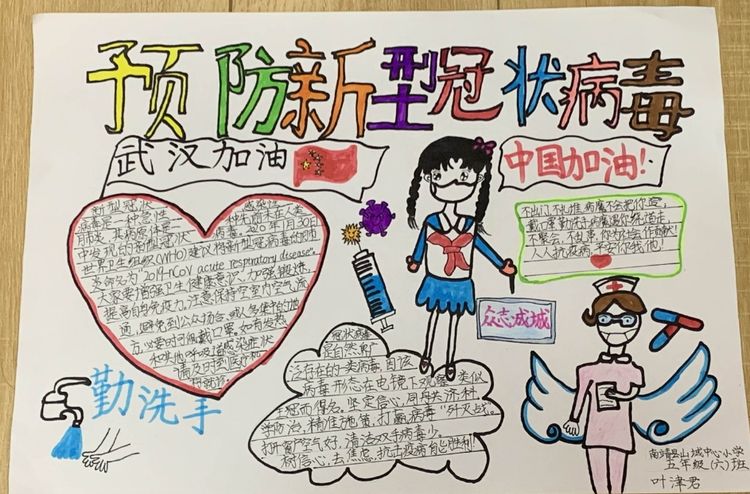 预防新型冠状病毒
武汉加油
中国加油!
新型冠状 感染性
病毒是一种急性
肺炎,其病原体是一种先前未在人类
中发现的新型冠状病毒。2020年1月30日
世界卫生组织(WHO)建议将新型冠病毒的肺炎
命名为"2019-nCoV acute respiratory disease"。
大家要增强卫生健康意识,加强锻进,
提高自身免疫力,注意保持空室内空气流
通,避免到公众场合、
必要时可佩戴口罩,如有发热
和其他呼吸道感染症状
请及时到医疗机
构就诊
不出门
戴口罩勤洗手病魔
人人抗疫病平安你我他!
众志成城
冠状病毒
是自然界广
泛存在的一类病毒,因该
病毒形态在电镜下观察类似
王冠而得名。坚定信心,同舟共济科
学防治,精准施策,打赢病毒"歼灭战。
开窗空气好,清洁双手病毒少。
树信心,去焦虑,抗击疫病自能胜利
勤洗手
南靖县山城中心小学
五年级(六)班
叶津君